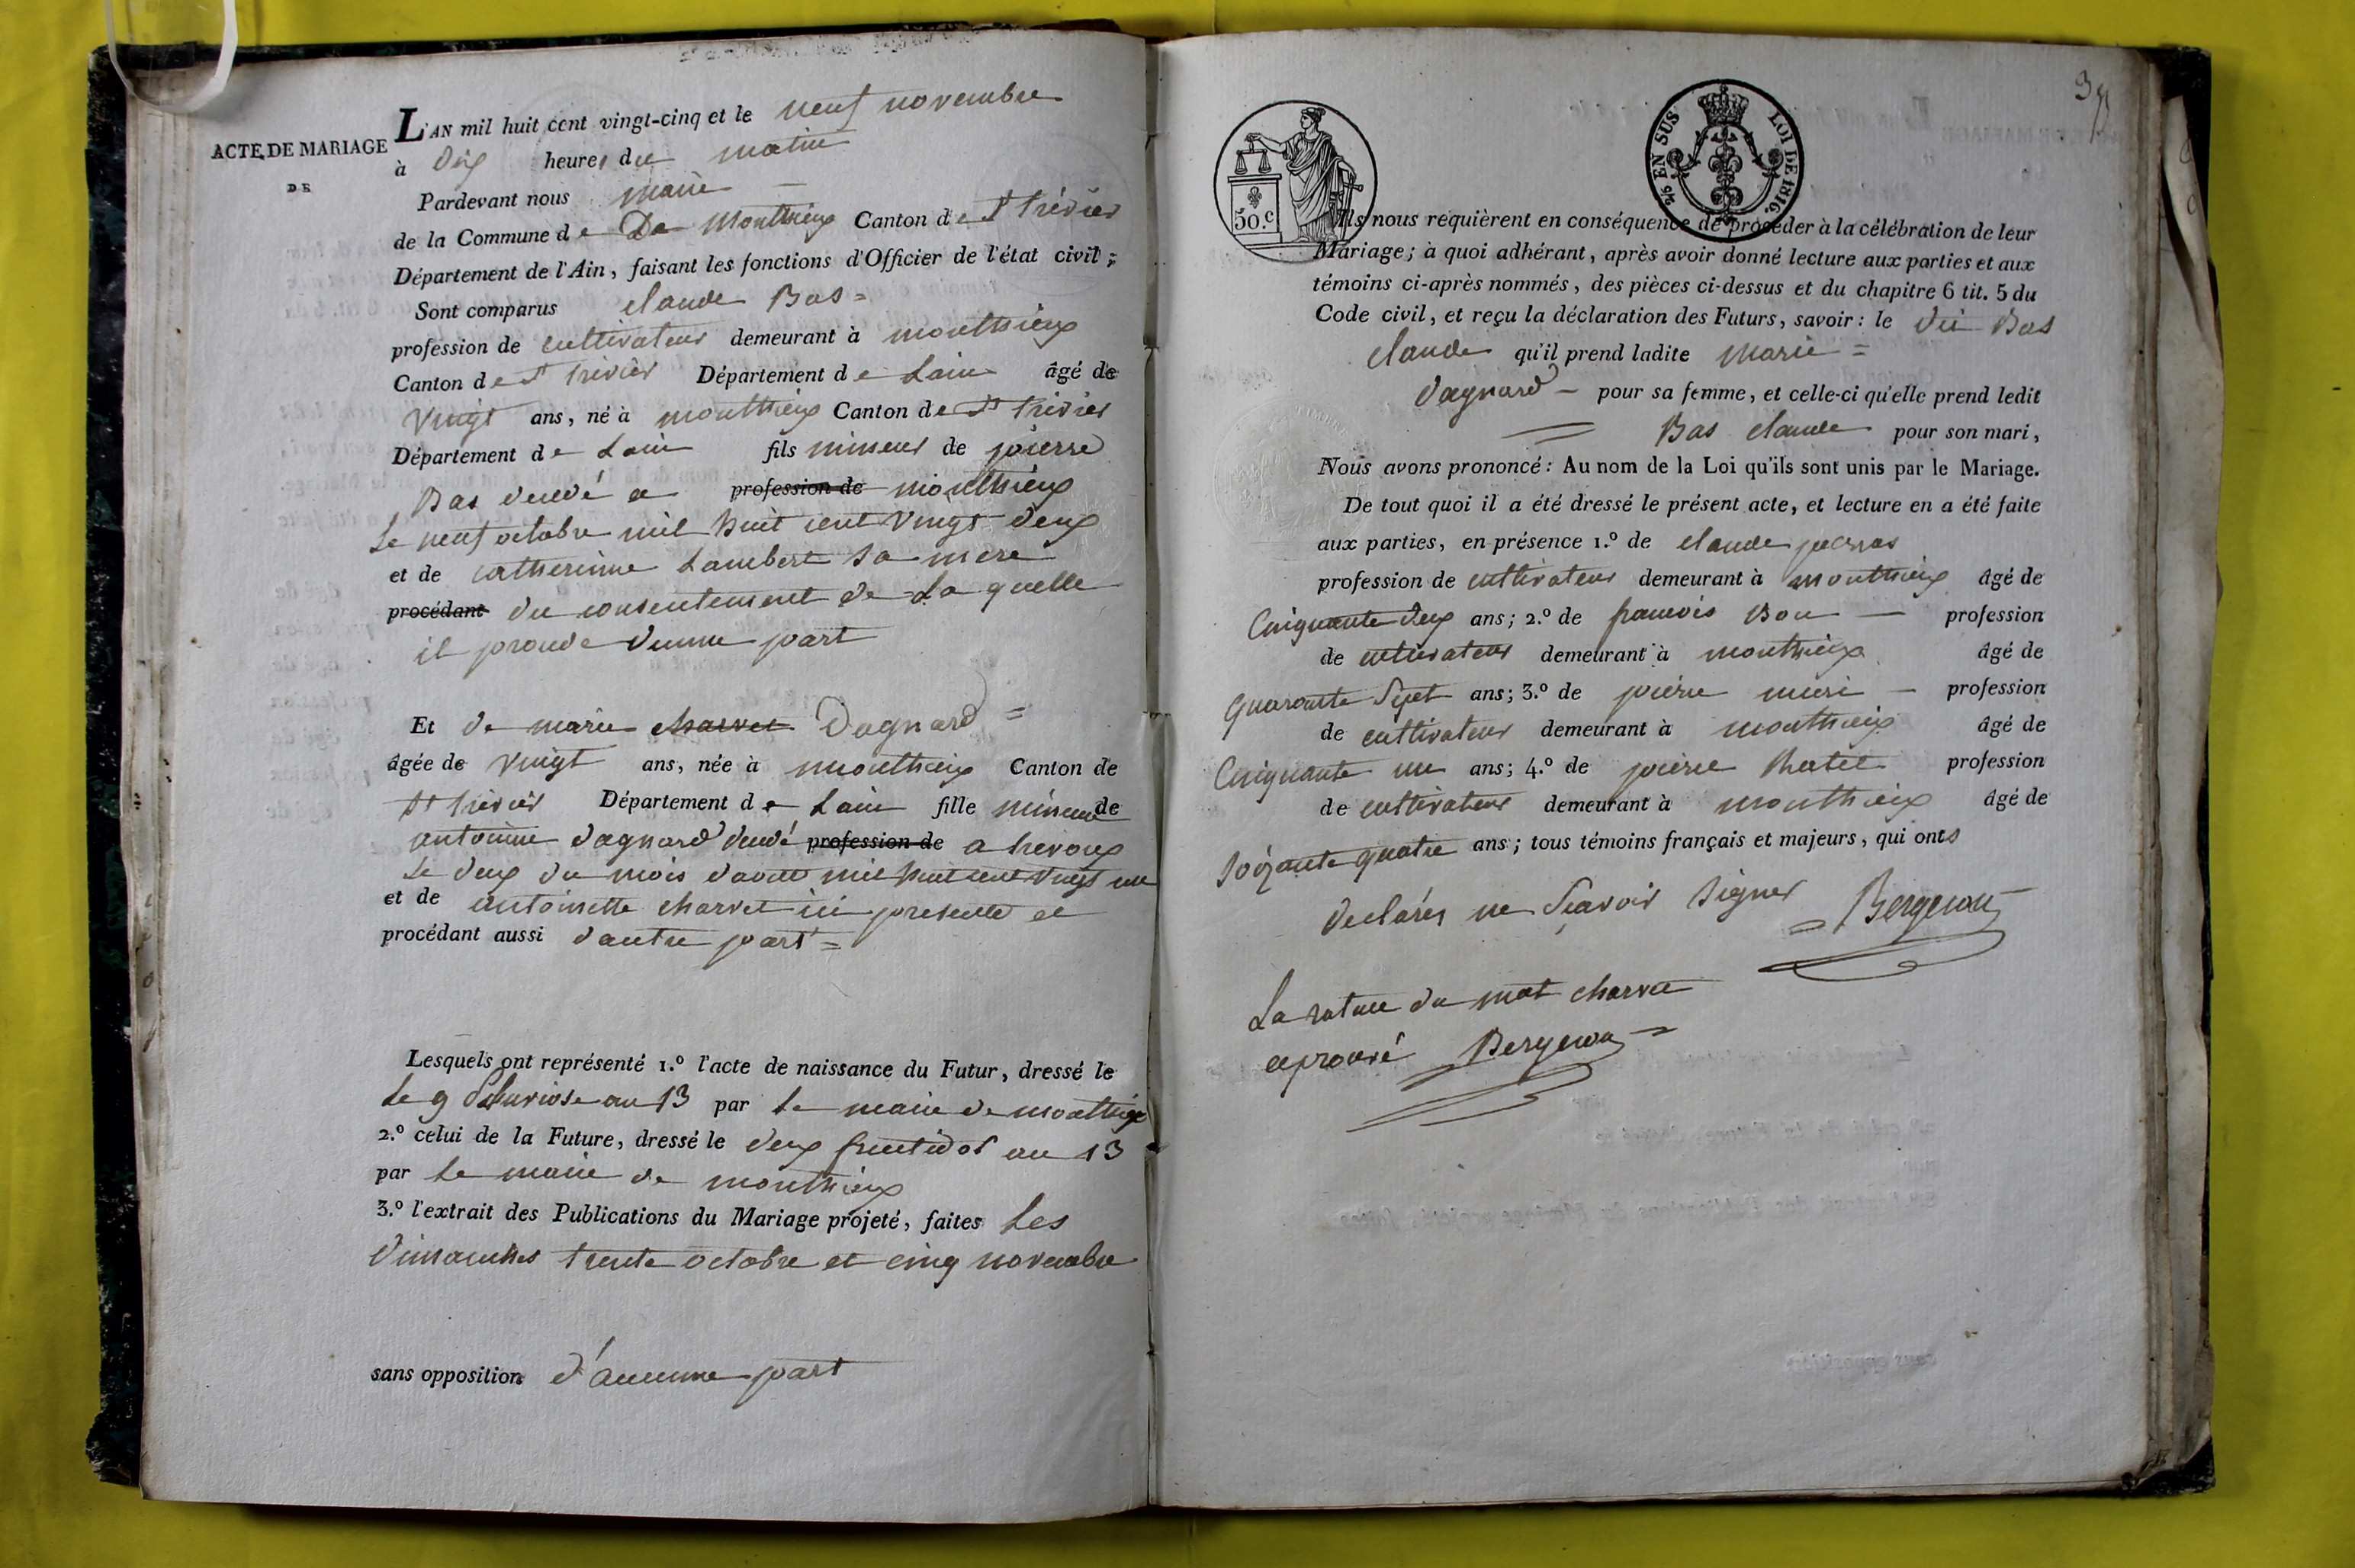 ACTE DE MARIAGE
DE
L'AN mil huit cent vingt-cinq et le neuf novembre
à dix heures du matin
Pardevant nous maire
de la Commune de De Monthieux Canton de St trévier
Département de l'Ain, faisant les fonctions d'Officier de l'état civil;
Sont comparus claude Bas =
profession de cultivateur demeurant à monthieux
Canton de St trévier Département de Lain âgé de
vingt ans, né à monthieux Canton de St trévier
Département de Lain fils mineur de pierre
Bas décédé a profession de monthieux
Le neuf octobre mil huit cent vingt deux
et de catherinne Lambert sa mere
procédant du consentement de La quelle
il procede dunne part
Et de marie charvet dagnard =
âgée de vingt ans, née à monthieux Canton de
St trévier Département de Lain fille mineure de
antoinne dagnard décédé profession de a trevoux
Le deux du mois davril mil huit cent vingt un
et de antoinette charvet ici presente et
procédant aussi dautre part =
Lesquels ont représenté 1.º l'acte de naissance du Futur, dressé le
Le 9 pluviose an 13 par Le maire de monthieux
2.º celui de la Future, dressé le deux fructidor an 13
par Le maire de monthieux
3.º l'extrait des Publications du Mariage projeté, faites Les
dimanches trente octobre et cinq novembre
sans opposition d'aucunne part
50.c
2/10 EN SUS LOI DE 1816.
Ils nous requièrent en conséquence de procéder à la célébration de leur
Mariage; à quoi adhérant, après avoir donné lecture aux parties et aux
témoins ci-après nommés, des pièces ci-dessus et du chapitre 6 tit. 5 du
Code civil, et reçu la déclaration des Futurs, savoir: le dit Bas
claude qu'il prend ladite marie =
dagnard — pour sa femme, et celle-ci qu'elle prend ledit
= Bas claude pour son mari,
Nous avons prononcé: Au nom de la Loi qu'ils sont unis par le Mariage.
De tout quoi il a été dressé le présent acte, et lecture en a été faite
aux parties, en présence 1.º de claude
profession de cultivateur demeurant à monthieux âgé de
Cinquante deux ans; 2.º de francois Bon — profession
de cultivateur demeurant à monthieux âgé de
quarante Sept ans; 3.º de pierre — profession
de cultivateur demeurant à monthieux âgé de
Cinquante un ans; 4.º de pierre profession
de cultivateur demeurant à monthieux âgé de
Soixante quatre ans; tous témoins français et majeurs, qui onts
declarés ne Scavoir Signer = Bergeron
La rature du mot charvet
aprouvé Bergeron